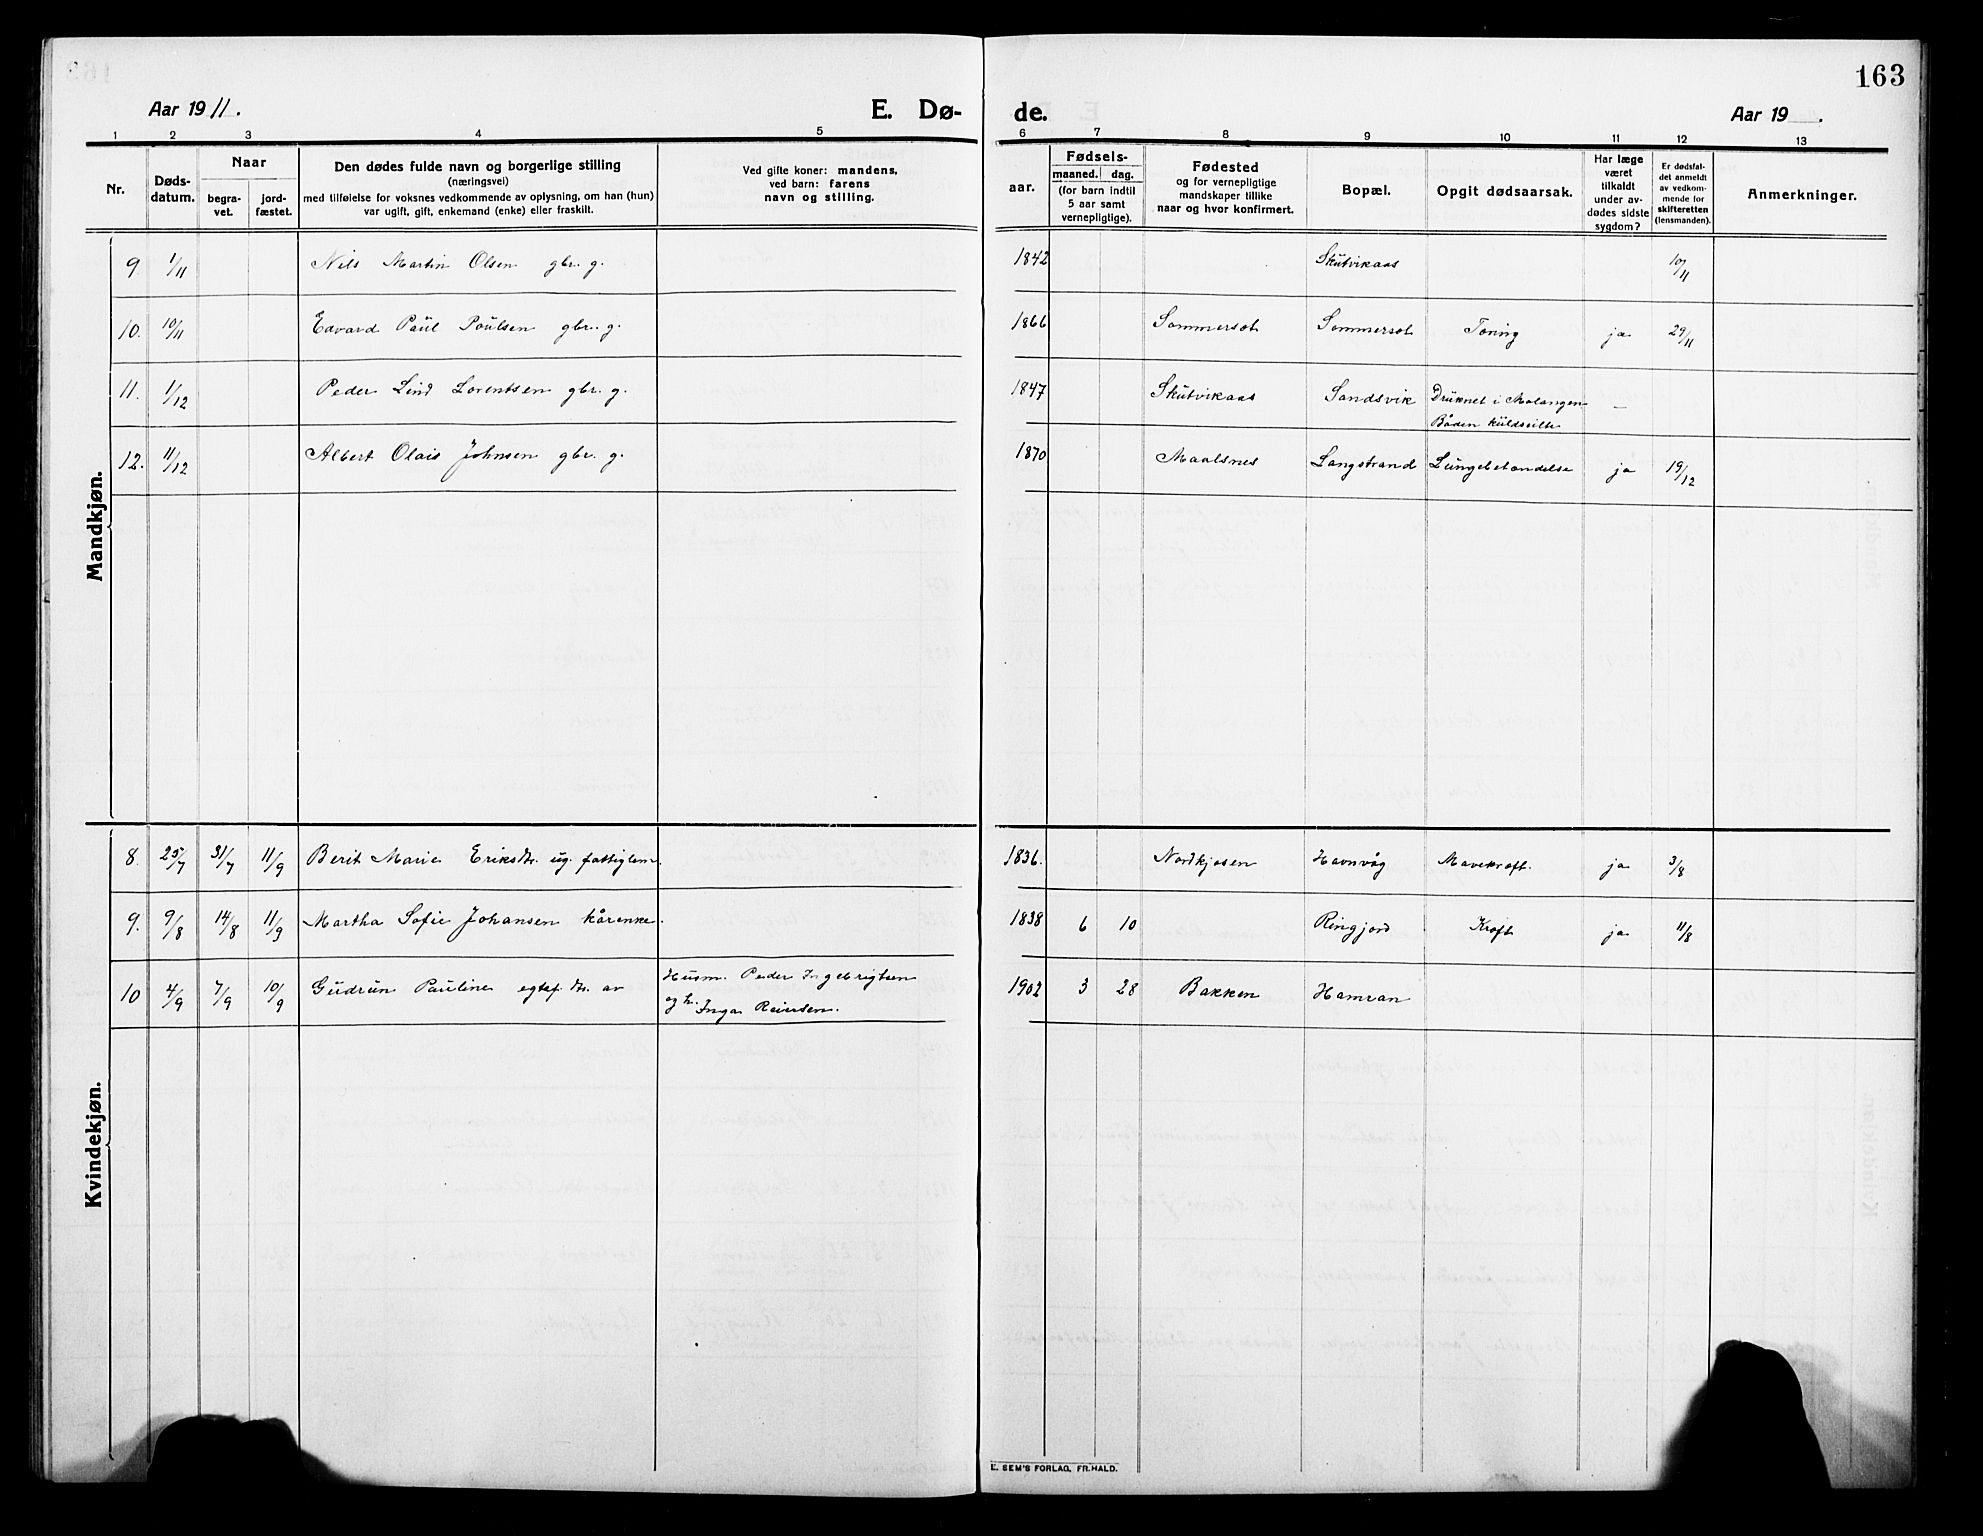 163
Aar 1911.
E. Dø-
de.
Aar 19 .
1 2 3 4 5 6 7 8 9 10 11 12 13
Nr.
Døds-
datum.
Naar
begra-
vet.
jord-
fæstet.
Den dødes fulde navn og borgerlige stilling
(næringsvei)
med tilføielse for voksnes vedkommende av oplysning, om han (hun)
var ugift, gift, enkemand (enke) eller fraskilt.
Ved gifte koner: mandens,
ved barn: farens
navn og stilling.
aar.
Fødsels-
maaned. dag.
(for barn indtil
5 aar samt
vernepligtige).
Fødested
og for vernepligtige
mandskaper tillike
naar og hvor konfirmert.
Bopæl.
Opgit dødsaarsak.
Har læge
været
tilkaldt
under av-
dødes sidste
sygdom?
Er dødsfal-
det anmeldt
av vedkom-
mende for
skifteretten
(lensmanden).
Anmerkninger.
Mandkjøn.
9. 1/11 Nils Martin Olsen gbr. g. 1842 Skutvikaas 10/11
10. 10/11 Edvard Paul Poulsen gbr. g. 1866 Sommerset Sommerset Tæring ja 29/11
11. 1/12 Peder Lind Lorentsen gbr. g. 1847 Skutvikaas Sandsvik Druknet i Malangen –
Båden kuldseilte
12. 11/12 Albert Olais Johnsen gbr. g. 1870 Maalsnes Langstrand Lungebetændelse ja 19/12
Kvindekjøn.
8. 25/7 31/7 11/9 Berit Marie Eriksdtr. ug. fattiglem. 1836. Nordkjosen Havnvåg Mavekræft. ja 3/8
9. 9/8 14/8 11/9 Martha Sofie Johansen kårenke. 1838 6 10 Ringjord Kræft ja 11/8
10 4/9 7/9 10/9 Gudrun Pauline egtef. dtr. av Husm. Peder Ingebrigtsen 1902 3 28 Bakken Hamran
og h. Inga Reiersen.
E. SEM'S FORLAG, FR.HALD.